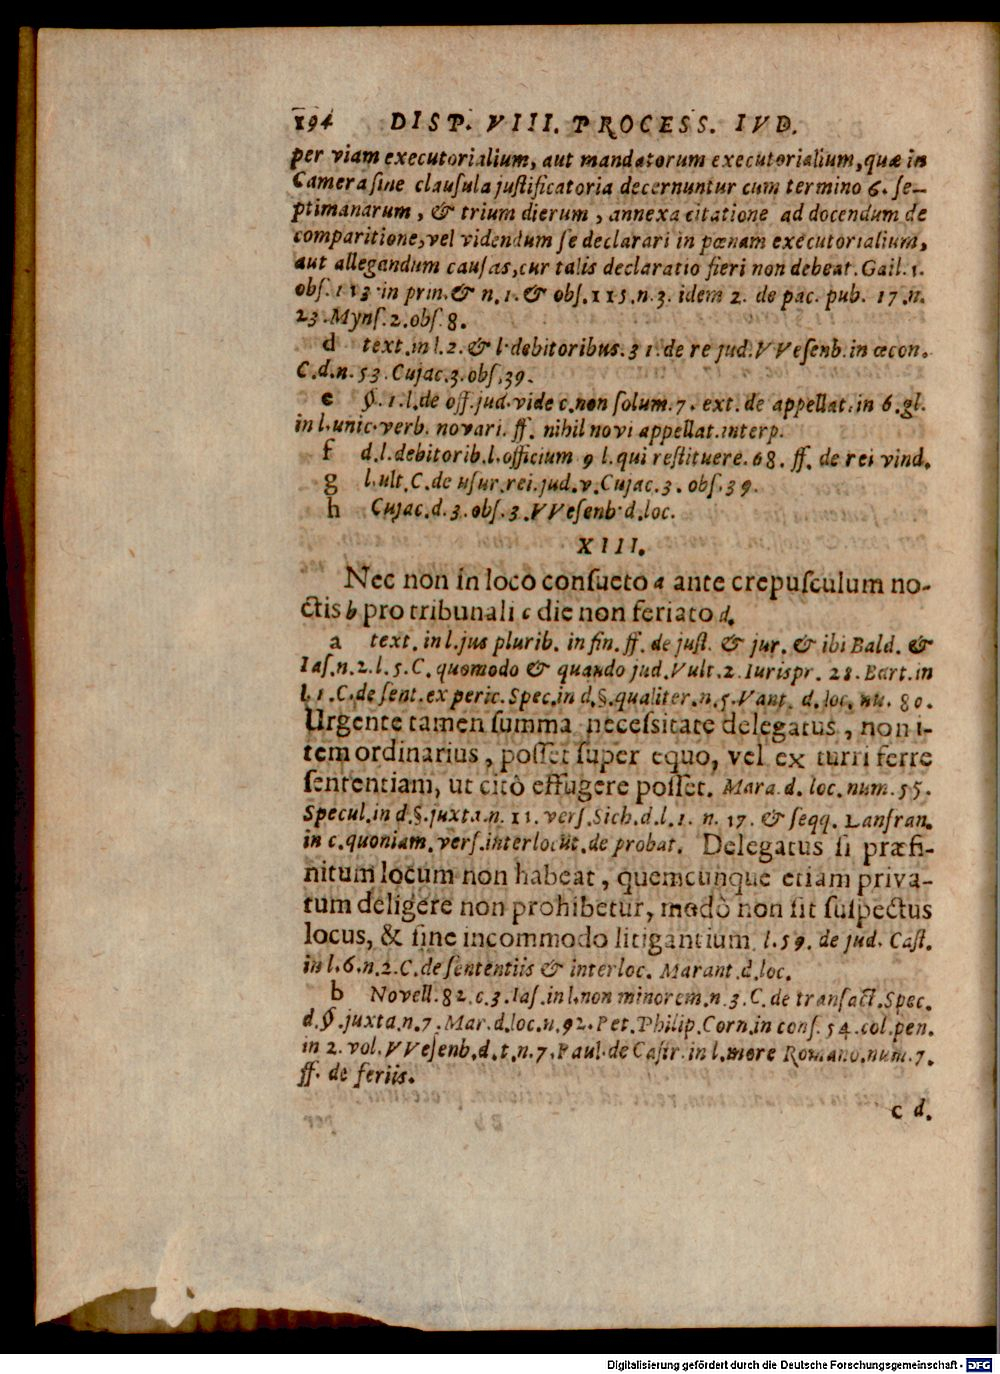 194 DISP. VIII. PROCESS. IVD.
per viam executorialium, aut mandatorum executorialium, quæ in
Camera ſine clauſula juſtificatoria decernuntur cum termino 6. ſe-
ptimanarum, & trium dierum, annexa citatione ad docendum de
comparitione, vel videndum ſe declarari in pœnam executorialium,
aut allegandum cauſas, cur talis declaratio fieri non debeat. Gail. 1.
obſ. 113. in prin. & n. 1. & obſ. 115. n. 3. idem 2. de pac. pub. 17. n.
23. Mynſ. 2. obſ. 8.
d text. in l. 2. & l. debitoribus. 31. de re jud. VVeſenb. in œcon.
C. d. n. 53. Cujac. 3. obſ. 39.
e §. 1. l. de off. jud. vide c. non ſolum. 7. ext. de appellat. in 6. gl.
in l. unic. verb. novari. ff. nihil novi appellat. interp.
f d. l. debitorib. l. officium 9 l. qui reſtituere. 68. ff. de rei vind.
g l. ult. C. de uſur. rei. jud. v. Cujac. 3. obſ. 39.
h Cujac. d. 3. obſ. 3. VVeſenb. d. loc.
XIII.
Nec non in loco conſueto a ante crepuſculum no-
ctis b pro tribunali c die non feriato d.
a text. in l. jus plurib. in fin. ff. de juſt. & jur. & ibi Bald. &
Iaſ. n. 2. l. 5. C. quomodo & quando jud. Vult. 2. Iurispr. 28. Bart. in
l. 1. C. de ſent. ex peric. Spec. in d. §. qualiter. n. 5. Vant. d. loc. nu. 80.
Urgente tamen ſumma neceſsitate delegatus, non i-
tem ordinarius, poſſet ſuper equo, vel ex turri ferre
ſententiam, ut citò effugere poſſet. Mara. d. loc. num. 55.
Specul. in d. §. juxta. n. 11. verſ. Sich. d. l. 1. n. 17. & ſeqq. Lanfran.
in c. quoniam. verſ. interlocut. de probat. Delegatus ſi præfi-
nitum locum non habeat, quemcunque etiam priva-
tum deligere non prohibetur, modò non ſit ſuſpectus
locus, & ſine incommodo litigantium. l. 59. de jud. Caſt.
in l. 6. n. 2. C. de ſententiis & interloc. Marant. d. loc.
b Novell. 82. c. 3. Iaſ. in l. non minorem. n. 3. C. de tranſact. Spec.
d. §. juxta. n. 7. Mar. d. loc. n. 92. Pet. Philip. Corn. in conſ. 54. col. pen.
in 2. vol. VVeſenb. d. t. n. 7. Paul. de Caſtr. in l. more Romano. num. 7.
ff. de feriis.
c d.
Digitalisierung gefördert durch die Deutsche Forschungsgemeinschaft - DFG